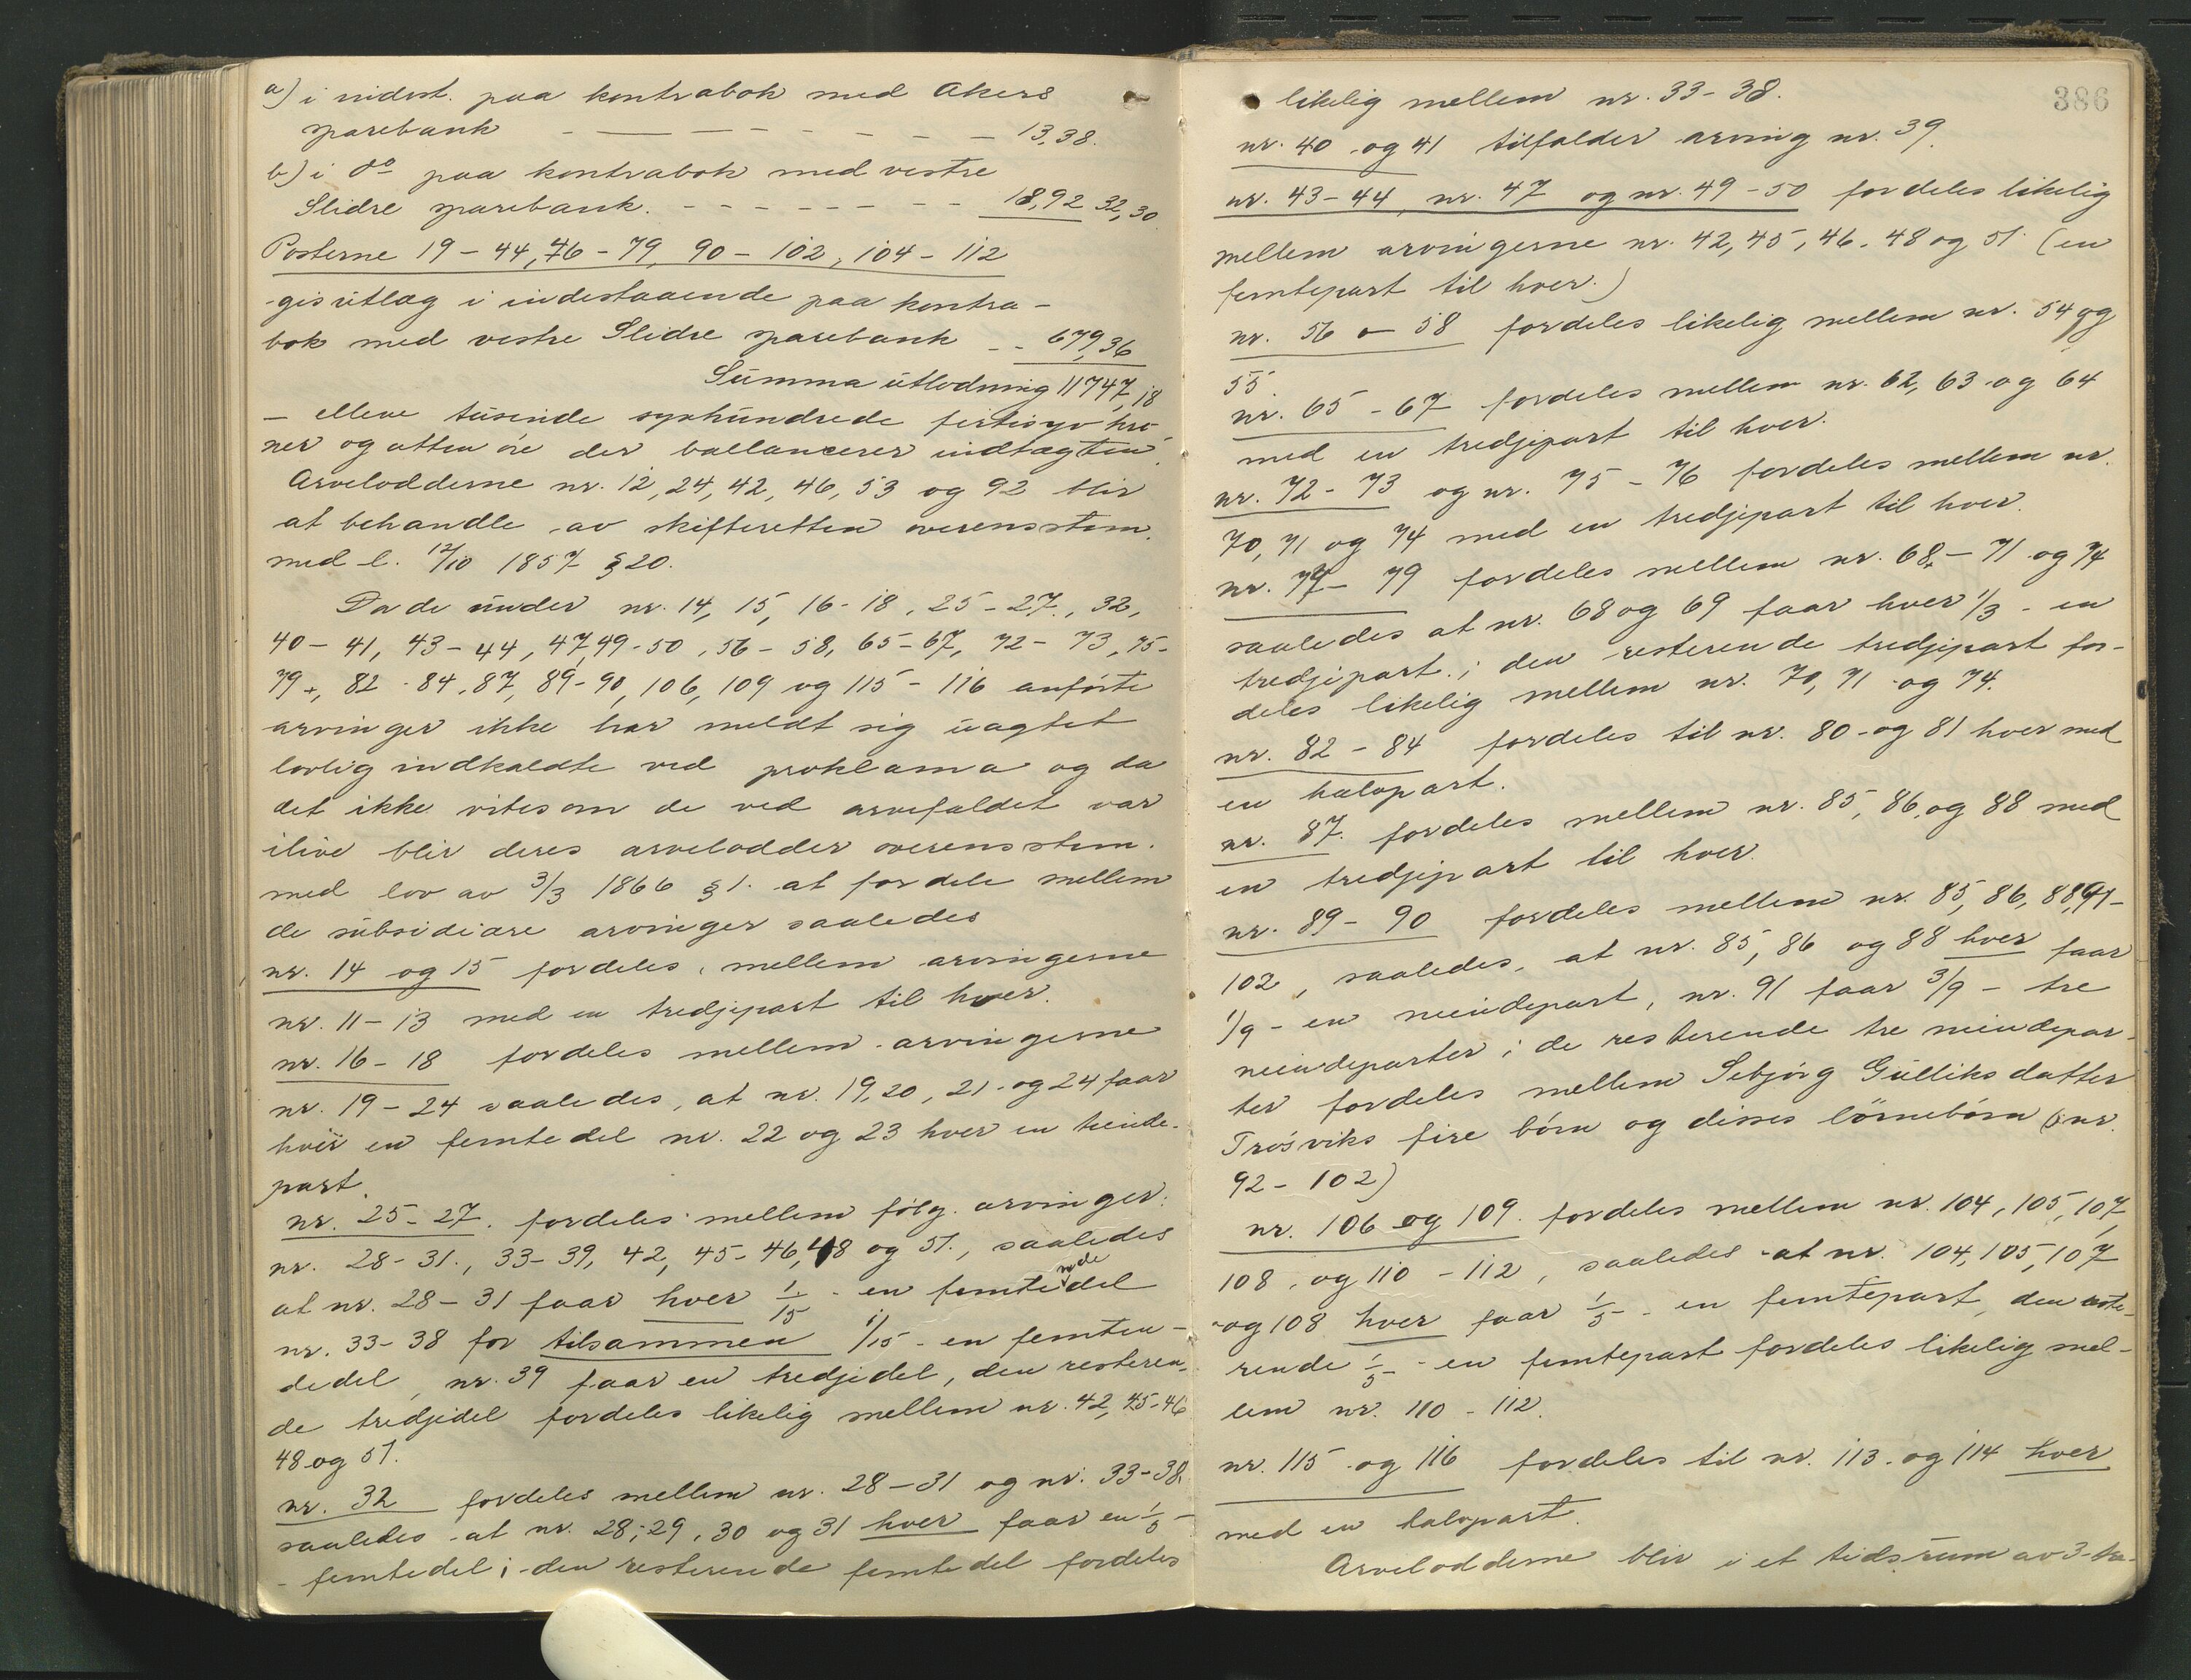 a) i indest. paa kontrabok med Akers
sparebank - — — - - - - - — 13,38.
b) i do paa kontrabok med vestre
Slidre sparebank. - - - - - - - - 18,92 32,30
Posterne 19 - 44, 76 - 79, 90 - 102, 104 - 112
gis utlæg i indestaaende paa kontra-
bok med vestre Slidre sparebank - - 679,36
Summa utlodning 11747,18
- elleve tusinde syvhundrede firtisyv kro-
ner og atten öre der ballancerer indtægten.
Arvelodderne nr. 12, 24, 42, 46, 53 og 92 blir
at behandle av skifteretten overensstem.
med l. 12/10 1857 § 20.
Da de under nr. 14, 15, 16-18, 25-27, 32,
40 - 41, 43 - 44, 47, 49-50, 56 - 58, 65-67, 72 - 73, 75-
79, 82 - 84, 87, 89-90, 106, 109 og 115 - 116 anförte
arvinger ikke har meldt sig uagtet
lovlig indkaldte ved proklama og da
det ikke vites om de ved arvefaldet var
ilive blir deres arvelodder overensstem.
med lov av 3/3 1866 § 1. at fordele mellem
de subsidiære arvinger saaledes
nr. 14 og 15 fordeles mellem arvingerne
nr. 11-13 med en tredjepart til hver.
nr. 16 - 18 fordeles mellem arvingerne
nr. 19 - 24 saaledes, at nr. 19, 20, 21 og 24 faar
hver en femtedel nr. 22 og 23 hver en tiende-
part.
nr. 25 - 27. fordeles mellem fölg. arvinger:
nr. 28-31., 33-39, 42, 45-46, 48 og 51., saaledes
at nr. 28 - 31 faar hver 1/15 - en femtendedel
nr. 33-38 for tilsammen 1/15 - en femten-
dedel, nr. 39 faar en tredjedel, den resteren-
de tredjedel fordeles likelig mellem nr. 42, 45-46
48 og 51.
nr. 32 fordeles mellem nr. 28 - 31 og nr. 33-38
saaledes at nr. 28, 29, 30 og 31 hver faar en 1/5 -
- femtedel; den resterende femtedel fordeles
386
likelig mellem nr. 33 - 38.
nr. 40 og 41 tilfalder arving nr. 39.
nr. 43 - 44, nr. 47 og nr. 49 - 50 fordeles likelig
mellem arvingerne nr. 42, 45, 46, 48 og 51 (en
femtepart til hver.)
nr. 56 - 58 fordeles likelig mellem nr. 54 og
55.
nr. 65 - 67 fordeles mellem nr. 62, 63 og 64
med en tredjepart til hver.
nr. 72 - 73 og nr. 75 - 76 fordeles mellem nr.
70, 71 og 74 med en tredjepart til hver.
nr. 77 - 79 fordeles mellem nr. 68 - 71 og 74
saaledes at nr. 68 og 69 faar hver 1/3 - en
tredjepart; den resterende tredjepart for-
deles likelig mellem nr. 70, 71 og 74.
nr. 82 - 84 fordeles til nr. 80 og 81 hver med
en halvpart.
nr. 87. fordeles mellem nr. 85, 86, og 88 med
en tredjepart til hver.
nr. 89 - 90 fordeles mellem nr. 85, 86, 88, 91-
102, saaledes, at nr. 85, 86 og 88 hver faar
1/9 - en niendepart, nr. 91 faar 3/9 - tre
niendeparter; de resterende tre niendepar-
ter fordeles mellem Sebjörg Gulliksdatter
Trösviks fire börn og disses börnebörn (nr.
92 - 102)
nr. 106 og 109. fordeles mellem nr. 104, 105, 107,
108, og 110 - 112, saaledes at nr. 104, 105, 107
og 108 hver faar 1/5 - en femtepart, den reste-
rende 1/5 - en femtepart fordeles likelig mel-
lem nr. 110 - 112.
nr. 115 og 116 fordeles til nr. 113 og 114 hver
med en halvpart.
Arvelodderne blir i et tidsrum av 3-tre-